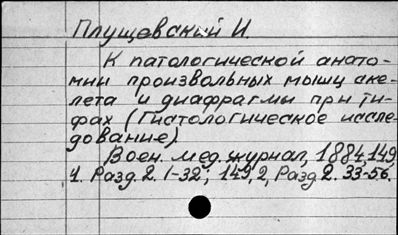 Плущевский И.
К патологической анато-
мии произвольных мышц ске-
лета и диафрагмы при ти-
фах (Гистологическое иссле-
дование).
Воен. мед. журнал, 1884, 149
1. Разд. 2. 1-32; 149, 2, Разд 2. 33-56.